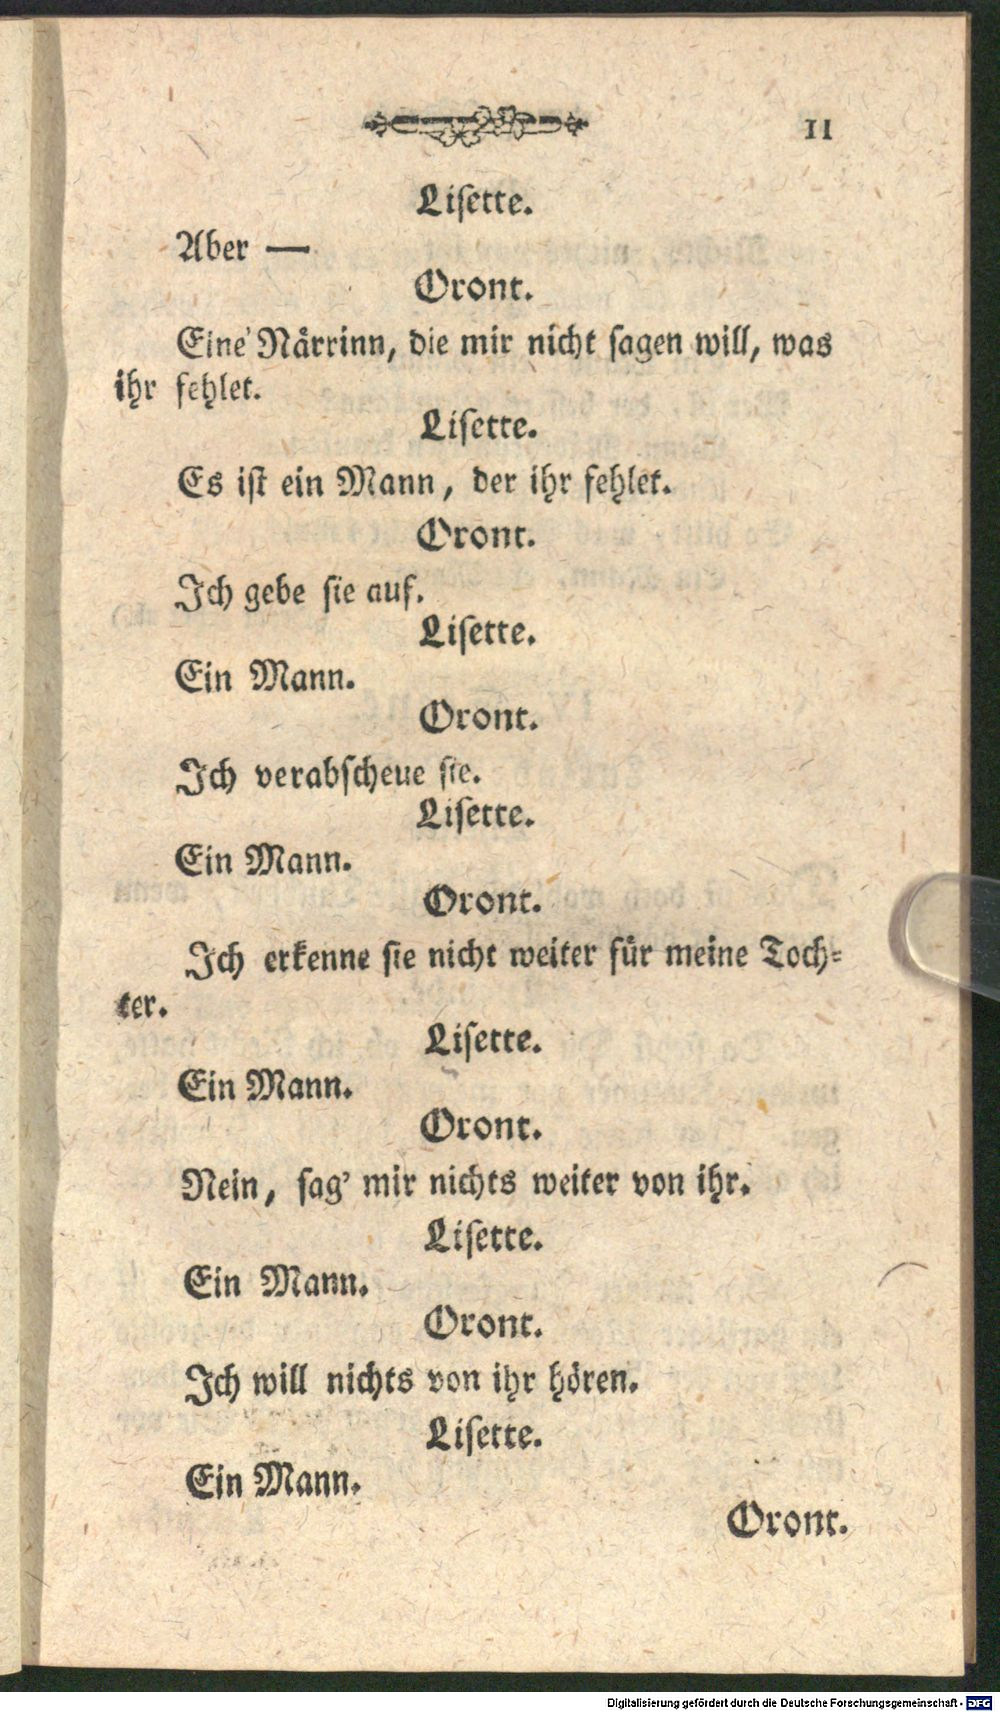 11
Lisette.
Aber —
Oront.
Eine Närrinn, die mir nicht sagen will, was
ihr fehlet.
Lisette.
Es ist ein Mann, der ihr fehlet.
Oront.
Ich gebe sie auf.
Lisette.
Ein Mann.
Oront.
Ich verabscheue sie.
Lisette.
Ein Mann.
Oront.
Ich erkenne sie nicht weiter für meine Toch-
ter.
Lisette.
Ein Mann.
Oront.
Nein, sag' mir nichts weiter von ihr.
Lisette.
Ein Mann.
Oront.
Ich will nichts von ihr hören.
Lisette.
Ein Mann.
Oront.
Digitalisierung gefördert durch die Deutsche Forschungsgemeinschaft - DFG